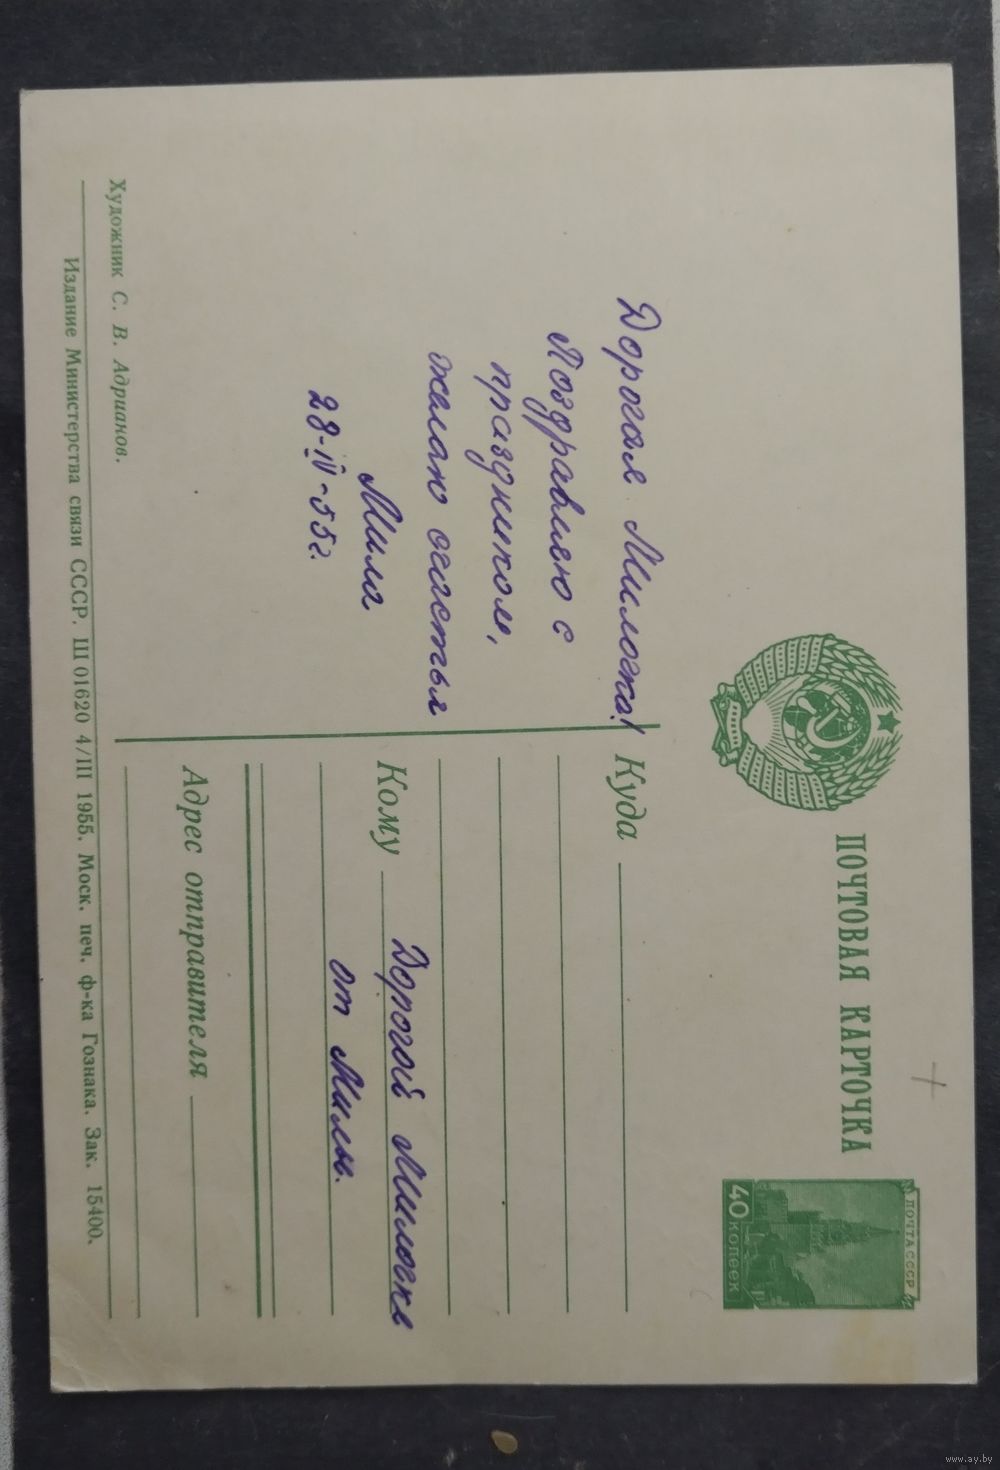 ПОЧТОВАЯ КАРТОЧКА
ПОЧТА СССР
40 КОПЕЕК
Дорогая Милочка!
Поздравляю с
праздником,
желаю счастья
Мила
28-IV-55г.
Куда
Кому Дорогой Милочке
от Милы.
Адрес отправителя
Художник С. В. Адрианов.
Издание Министерства связи СССР. Ш 01620 4/III 1955. Моск. печ. ф-ка Гознака. Зак. 15400.
www.ay.by